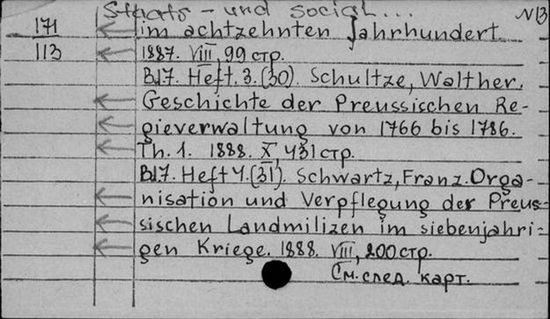 Staats- und social... N13
171 im achtzehnten Jahrhundert
113 1887. VIII, 99 стр.
Bd 7. Heft. 3. (30). Schultze, Walther.
Geschichte der Preussischen Re-
gieverwaltung von 1766 bis 1786.
Th. 1. 1888. X, 431 стр.
Bd 7. Heft 4. (31). Schwartz, Franz. Orga-
nisation und Verpflegung der Preus-
sischen Landmilizen im siebenjähri-
gen Kriege. 1888. VIII, 200 стр.
См. след. карт.